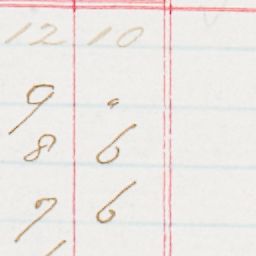 12 10
9 "
8 6
7 6